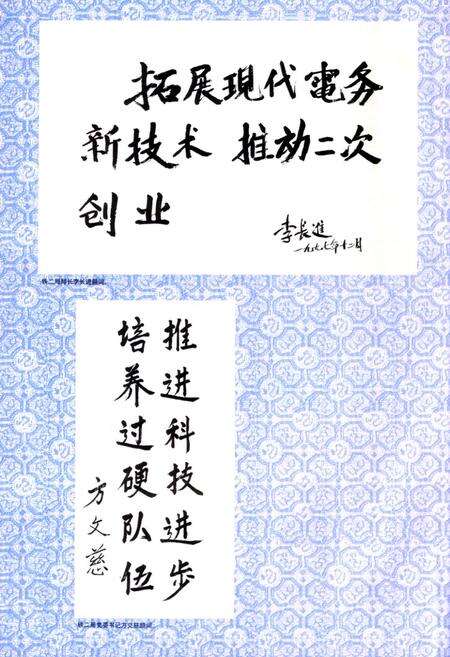 拓展現代電务
新技术 推动二次
创业
李长進
一九九七年十二月
铁二局局长李长进题词。
推进科技进步
培养过硬队伍
方文慈
铁二局党委书记方文慈题词